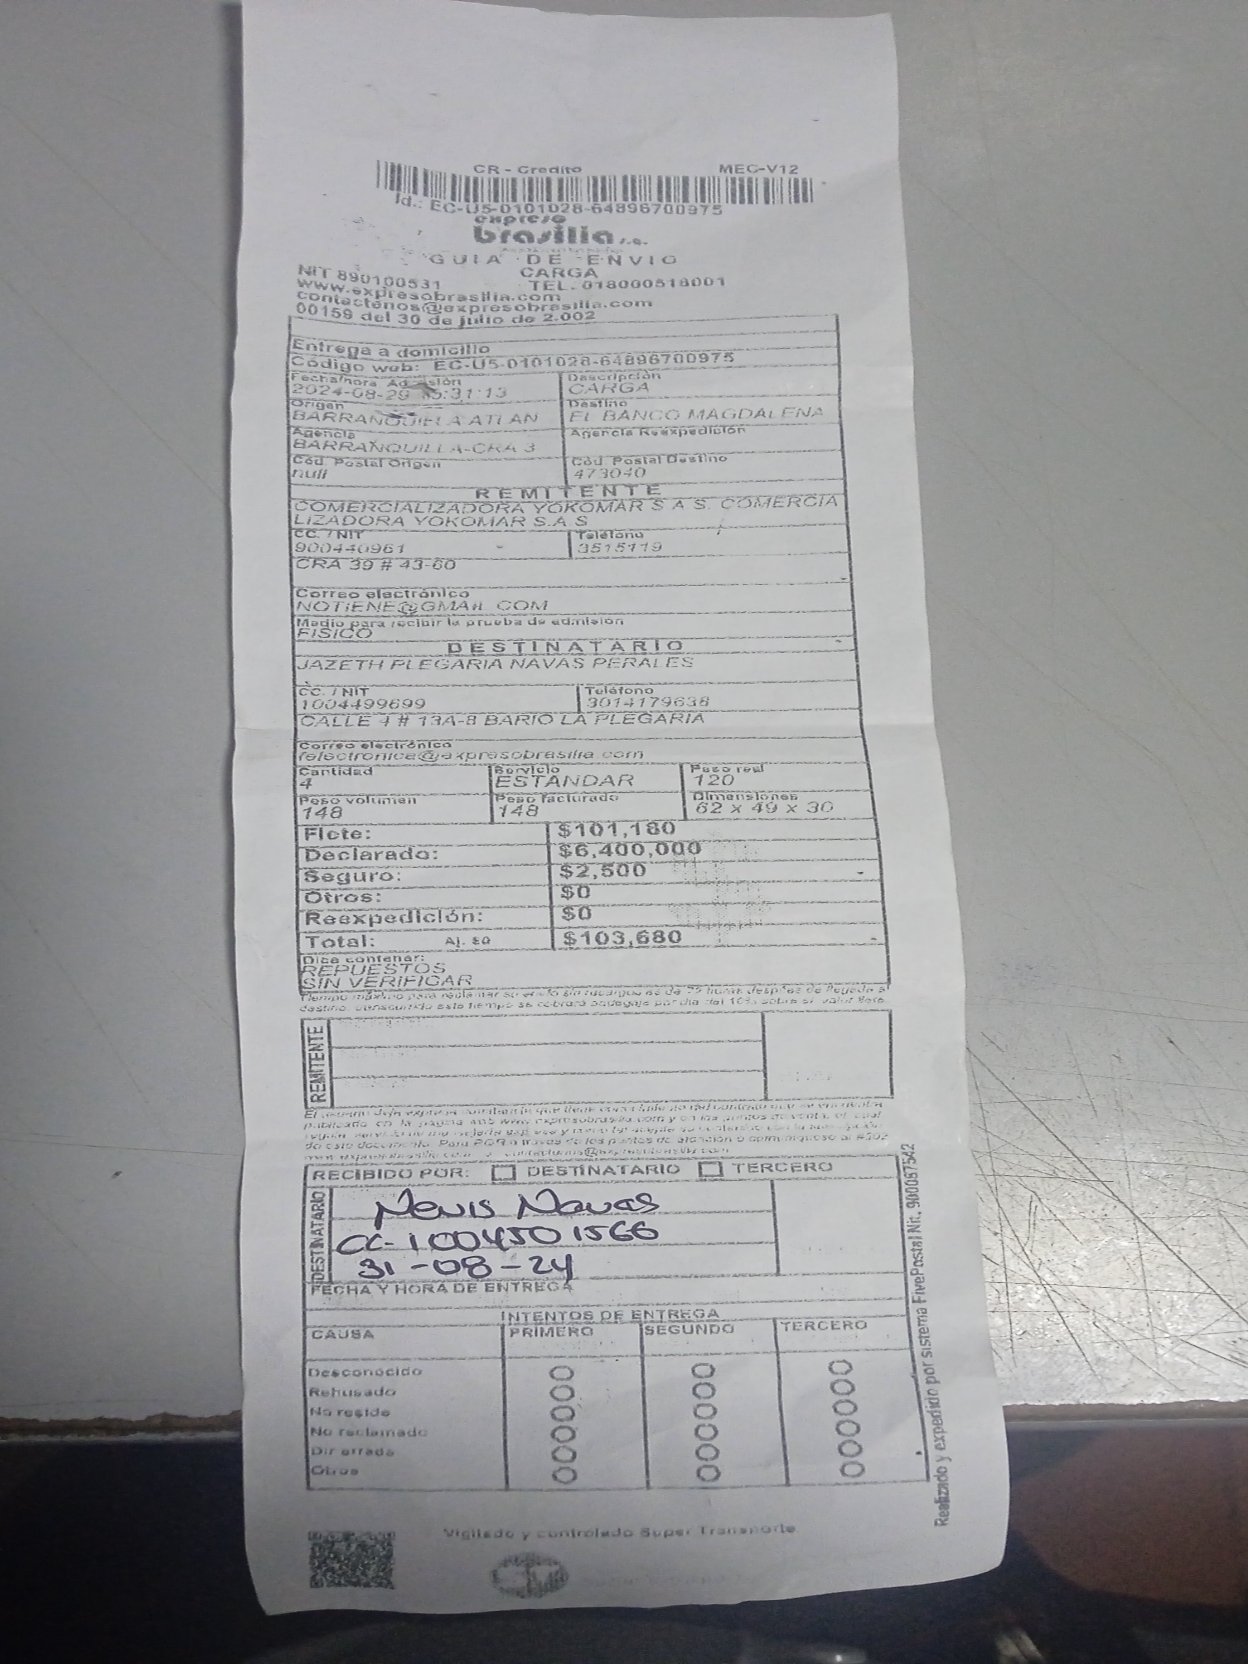 CR - Credito MEC-V12
Id.: EC-U5-0101028-64896700975
expreso
brasilia s.a.
GUIA DE ENVIO
NIT 890100531 CARGA
www.expresobrasilia.com TEL. 018000518001
contactenos@expresobrasilia.com
00159 del 30 de julio de 2.002
Entrega a domicilio
Código web: EC-U5-0101028-64896700975
Fecha/hora Admisión Descripción
2024-08-29 :31:13 CARGA
Origen Destino
BARRANQUILLA ATLAN EL BANCO MAGDALENA
Agencia Agencia Reexpedición
BARRANQUILLA-CRA 3
Cód. Postal Origen Cód. Postal Destino
null 473040
REMITENTE
COMERCIALIZADORA YOKOMAR S A S. COMERCIA
LIZADORA YOKOMAR S.A S
CC. / NIT Teléfono
900440961 3515119
CRA 39 # 43-60
Correo electrónico
NOTIENE@GMAIL.COM
Medio para recibir la prueba de admisión
FISICO
DESTINATARIO
JAZETH PLEGARIA NAVAS PERALES
CC. / NIT Teléfono
1004499699 3014179638
CALLE 4 # 13A-8 BARIO LA PLEGARIA
Correo electrónico
felectronica@expresobrasilia.com
Cantidad Servicio Peso real
4 ESTANDAR 120
Peso volumen Peso facturado Dimensiones
148 148 62 x 49 x 30
Flete: $101,180
Declarado: $6,400,000
Seguro: $2,500
Otros: $0
Reexpedición: $0
Total: Aj. $0 $103,680
Dice contener:
REPUESTOS
SIN VERIFICAR
Tiempo máximo para reclamar su envío sin recargos es de 72 horas después de llegada a
destino, transcurrido este tiempo se cobrará bodegaje por día del 10% sobre el valor flete.
REMITENTE
RECIBIDO POR: DESTINATARIO TERCERO
DESTINATARIO
Nevis Navas
CC-1004501566
31-08-24
FECHA Y HORA DE ENTREGA
INTENTOS DE ENTREGA
CAUSA PRIMERO SEGUNDO TERCERO
Desconocido
Rehusado
No reside
No reclamado
Dir errada
Otros
Realizado y expedido por sistema FivePostal Nit. 900087542
Vigilado y controlado Super Transporte